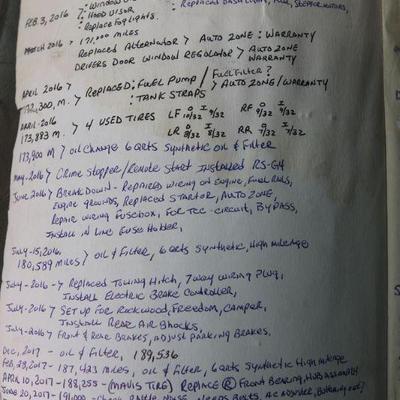 : Window
FEB. 3, 2016 : Hood Visor
: Replace Fog Lights.
MARCH 2016 > 171,000 MILES
Replaced Alternator > AUTO ZONE : WARRANTY
DRIVERS DOOR WINDOW REGULATOR > AUTO ZONE
WARRANTY
APRIL 2016 > REPLACED : FUEL PUMP / FUEL FILTER ?
172,300, M. : TANK STRAPS > AUTO ZONE / WARRANTY
APRIL-2016 > 4 USED TIRES LF O 10/32 I 9/32 RF O 9/32 I 9/32
173,883 M. LR 8/32 8/32 RR 7/32 7/32
173,900 M > oil change 6 QRTS Synthetic oil & Filter
May-2016 > Crime Stopper / Remote Start Installed RS-G4
June 2016 > BreakDown - Repaired wiring on Engine, Fuel Rails,
Engine grounds, Replaced Startor, AUTO ZONE,
Repair wiring Fusebox, For TCC-circuit, ByPASS,
Install in Line Fuse Holder,
July-15, 2016,
180,589 MILES > oil & Filter, 6 qrts Synthetic, High mileage
July-2016 > Replaced Towing Hitch, 7way wiring Plug,
Install Electric Brake Controller,
July-2016 > Set up For Rockwood, Freedom, Camper,
Install Rear Air Shocks,
July-2016 > Front & Rear Brakes, Adjust Parking Brakes.
Dec, 2017 - oil & filter, 189,536
Feb, 28, 2017 - 187,423 miles, oil & Filter, 6 qrts Synthetic High mileage
APRIL 10, 2017 - 188,255 - (MAVIS TIRE) Replace (R) Front Bearing, Hub Assembly
June 20, 2017 - 191,000 - Needs Bolts,